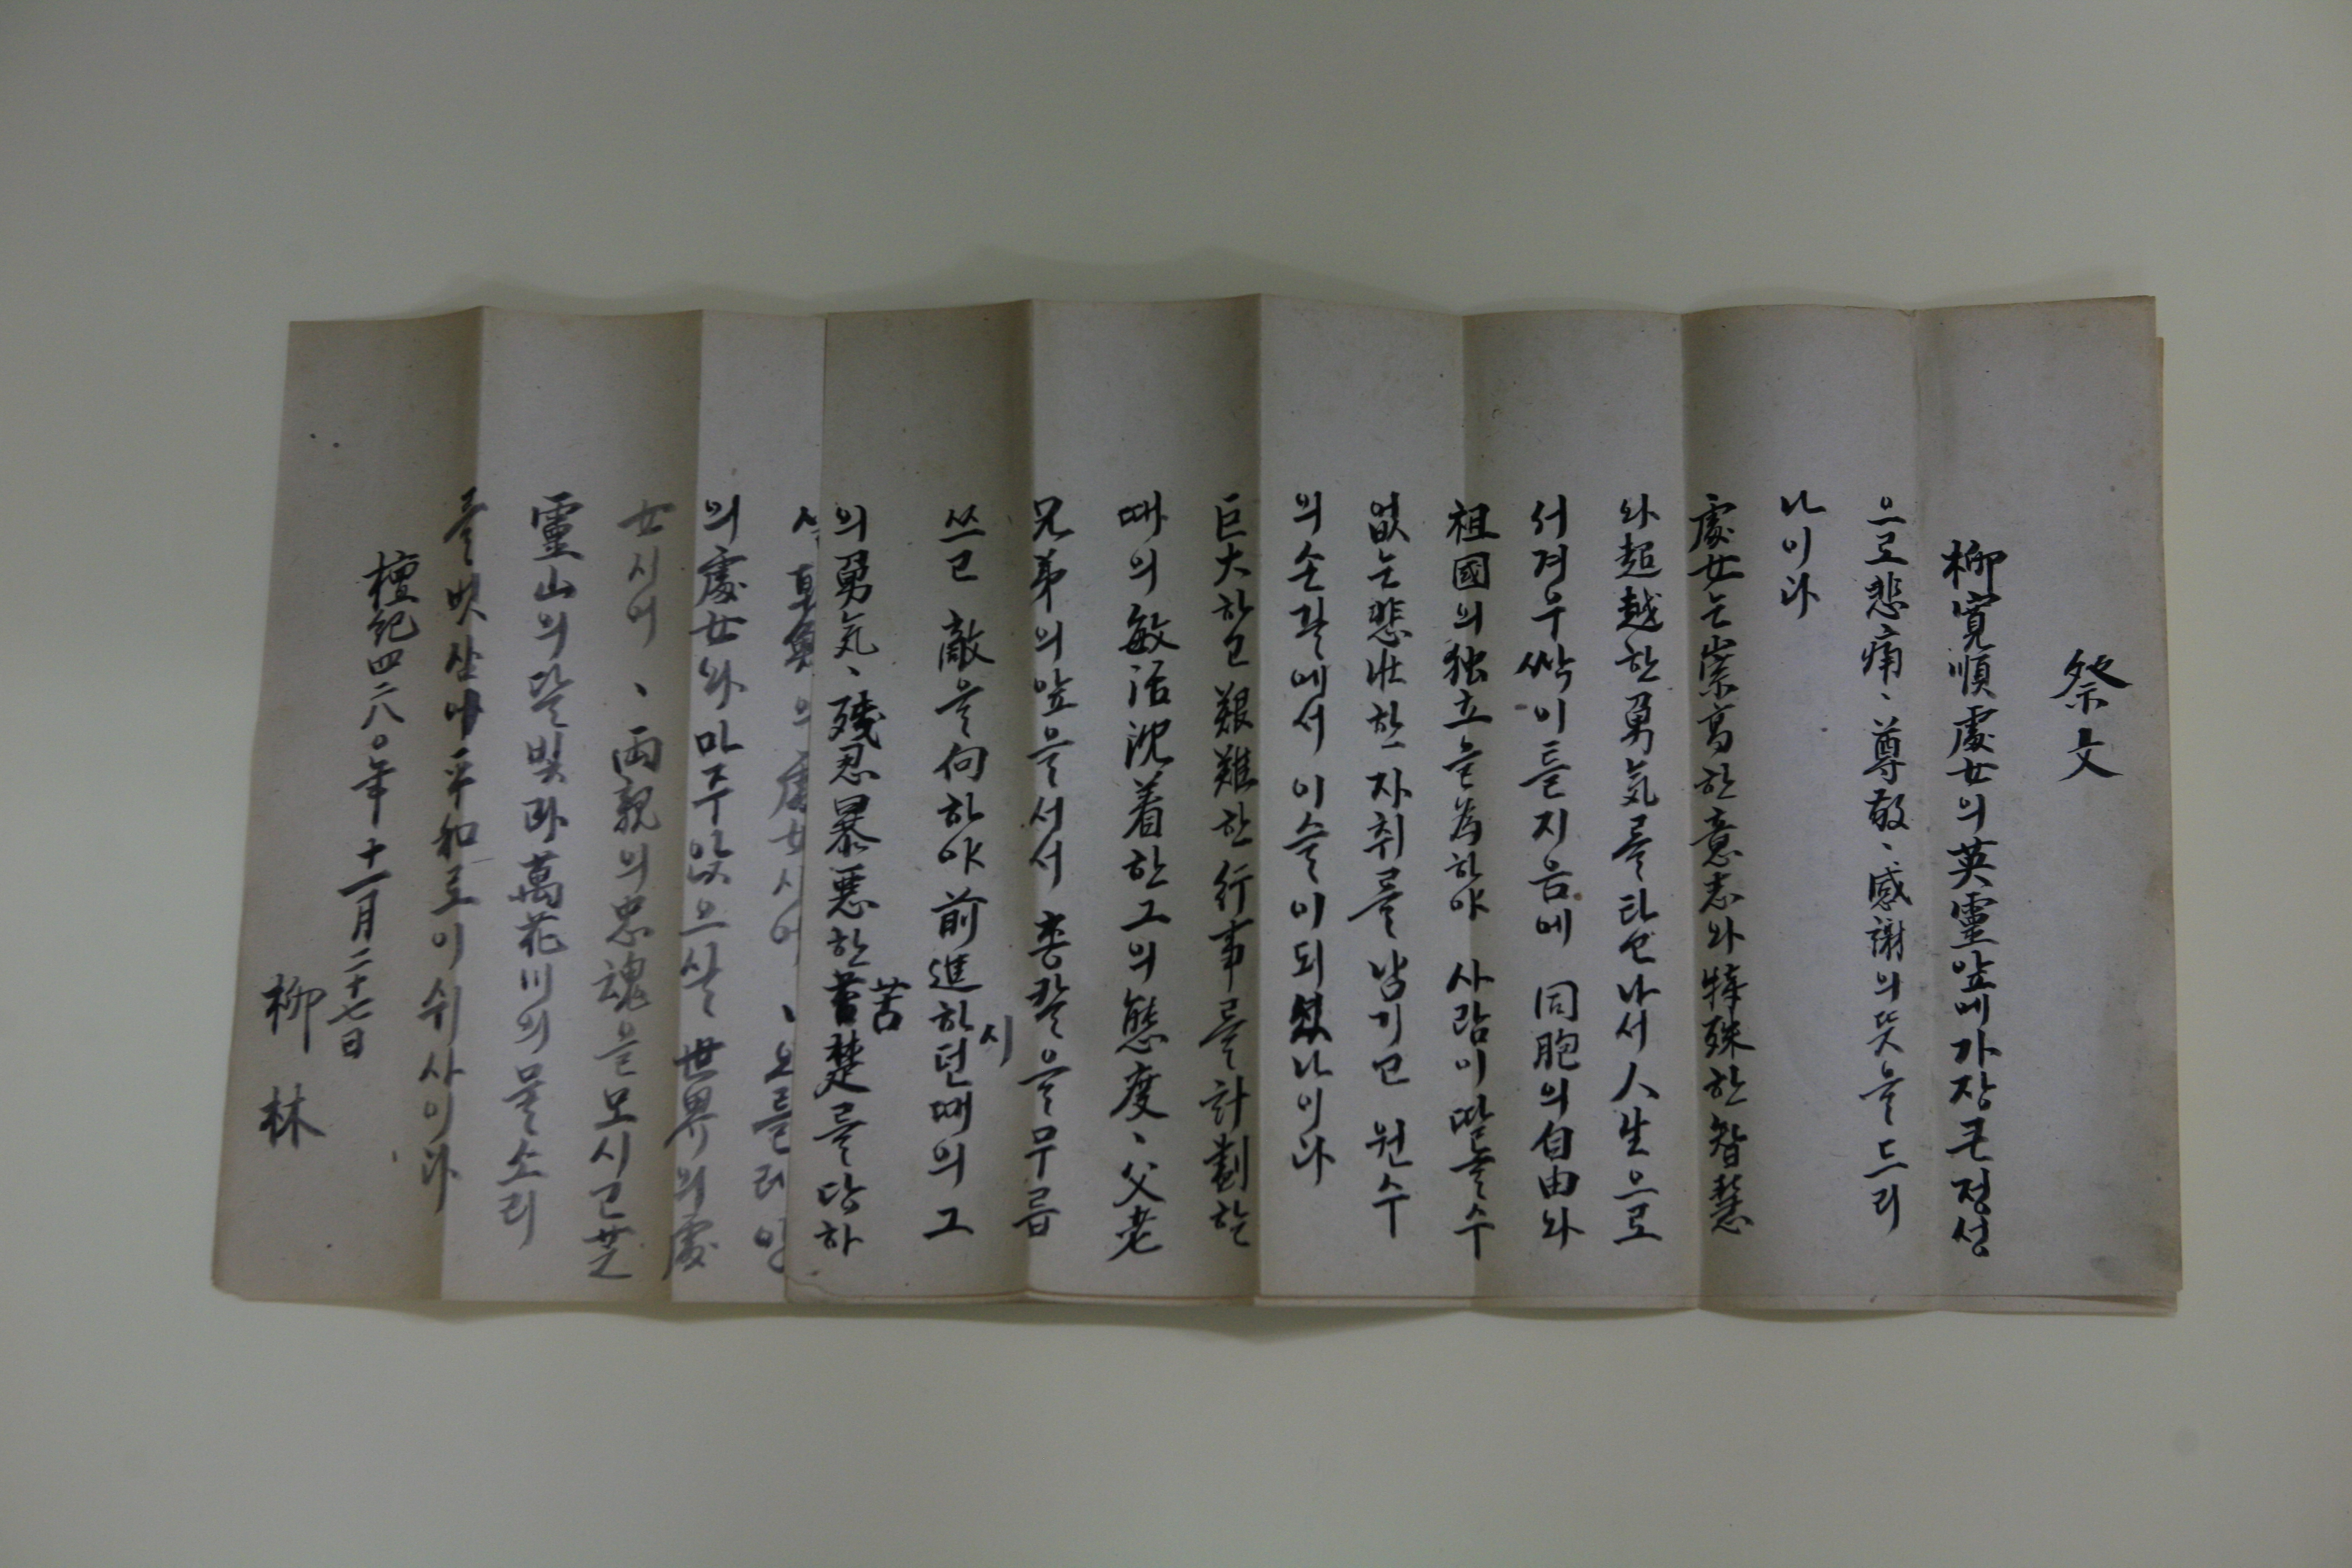 祭文
柳寬順處女의英靈앞에가장큰정성
으로悲痛、尊敬、感謝의뜻을드리
나이다
處女는崇高한意志와特殊한智慧
와超越한勇気를타고나서人生으로
서겨우싹이틀지음에 同胞의自由와
祖國의独立을為하야 사람이딸을수
없는悲壯한자취를남기고 원수
의손길에서 이슬이되셨나이다
巨大하고艱難한行事를計劃할
때의敏活沈着한그의態度、父老
兄弟의앞을서서 총칼을무릅
쓰고 敵을向하야前進하시던때의그
의勇気、殘忍暴悪한苦楚를당하
의處女와마주앉으실 世界의處
女시여 、兩親의忠魂을모시고芝
靈山의달빛과萬花川의물소리
를벗삼아平和로이쉬사이다
檀紀四二八〇年十一月二十七日
柳林